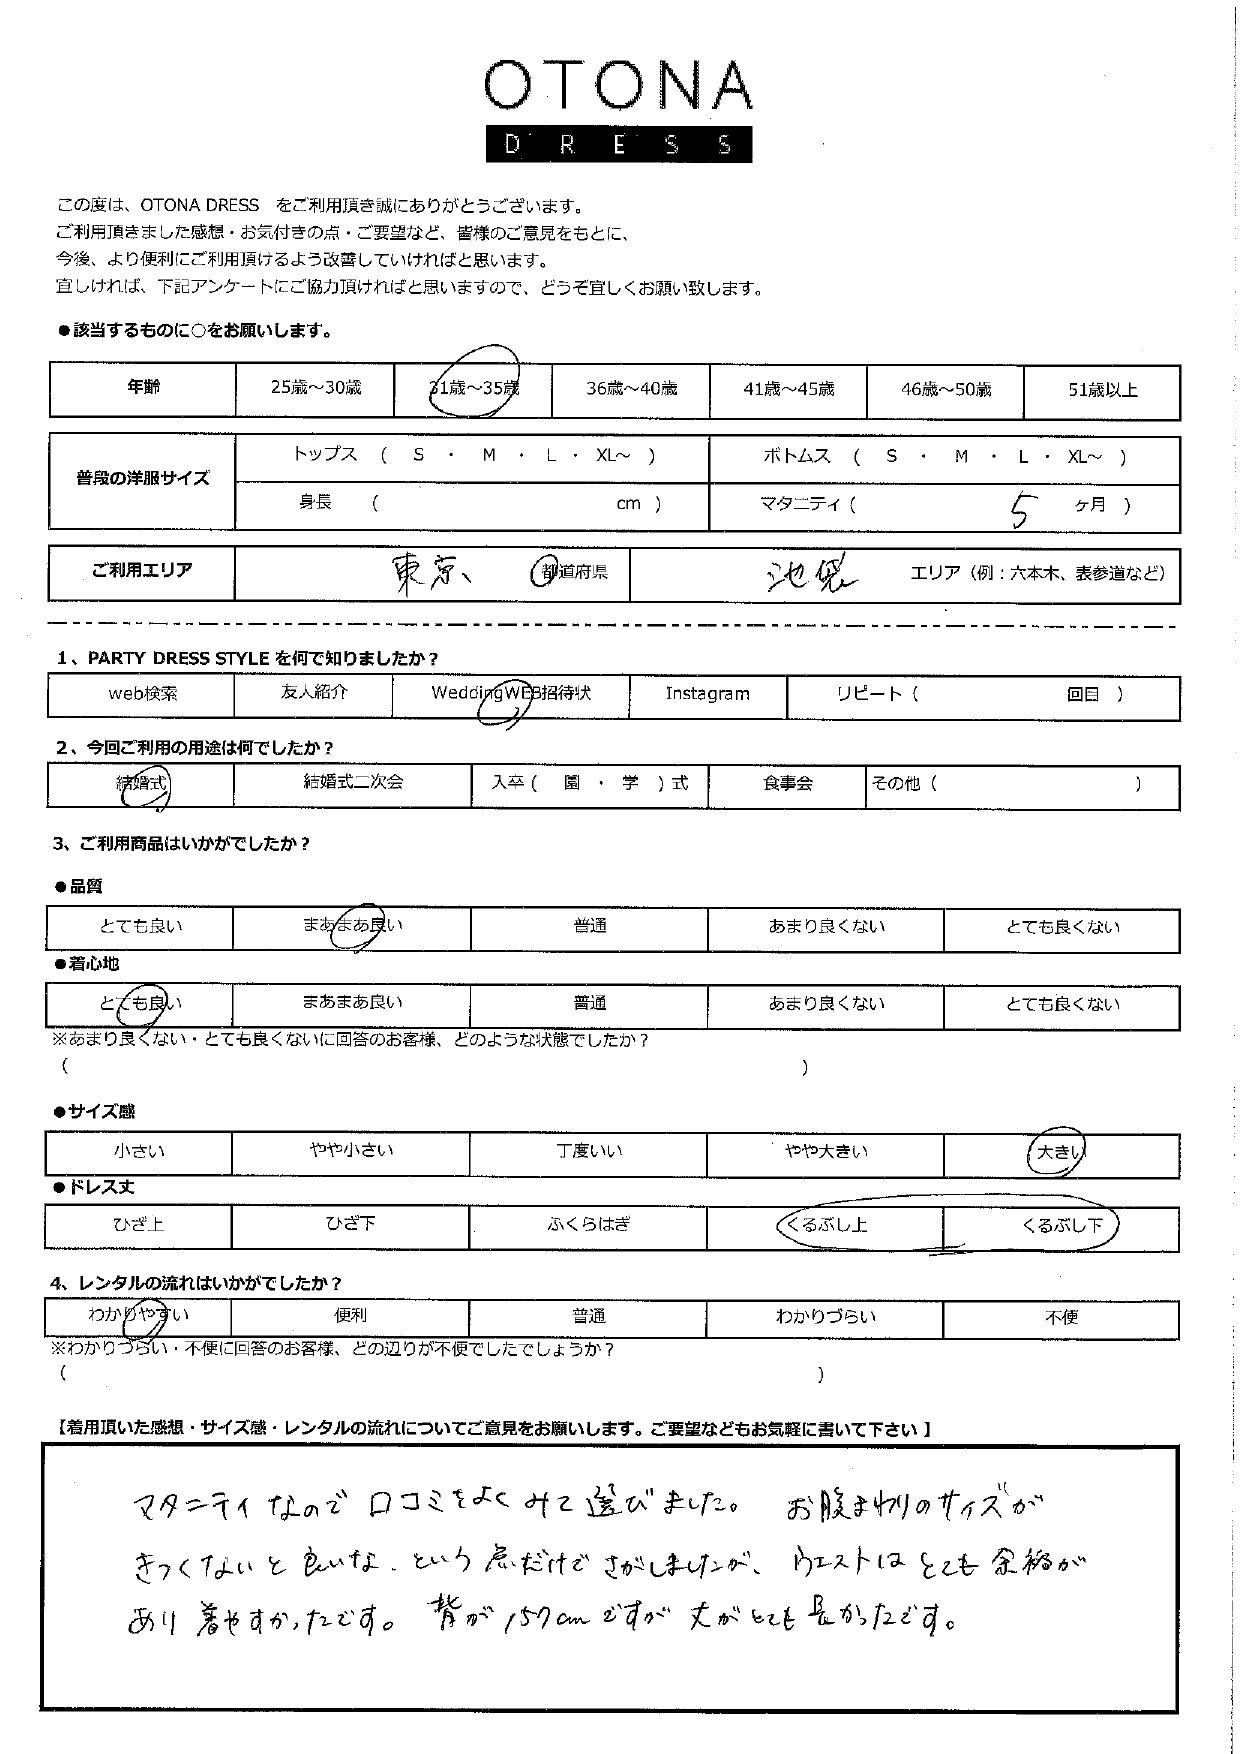 OTONA
DRESS
この度は、OTONA DRESS をご利用頂き誠にありがとうございます。
ご利用頂きました感想・お気付きの点・ご要望など、皆様のご意見をもとに、
今後、より便利にご利用頂けるよう改善していければと思います。
宜しければ、下記アンケートにご協力頂ければと思いますので、どうぞ宜しくお願い致します。
●該当するものに○をお願いします。
年齢 25歳～30歳 31歳～35歳 36歳～40歳 41歳～45歳 46歳～50歳 51歳以上
普段の洋服サイズ
トップス ( S ・ M ・ L ・ XL～ ) ボトムス ( S ・ M ・ L ・ XL～ )
身長 ( cm ) マタニティ ( 5 ヶ月 )
ご利用エリア 東京、 都道府県 池袋 エリア（例：六本木、表参道など）
1、PARTY DRESS STYLE を何で知りましたか？
web検索 友人紹介 WeddingWEB招待状 Instagram リピート ( 回目 )
2、今回ご利用の用途は何でしたか？
結婚式 結婚式二次会 入卒 ( 園 ・ 学 ) 式 食事会 その他 ( )
3、ご利用商品はいかがでしたか？
●品質
とても良い まあまあ良い 普通 あまり良くない とても良くない
●着心地
とても良い まあまあ良い 普通 あまり良くない とても良くない
※あまり良くない・とても良くないに回答のお客様、どのような状態でしたか？
( )
●サイズ感
小さい やや小さい 丁度いい やや大きい 大きい
●ドレス丈
ひざ上 ひざ下 ふくらはぎ くるぶし上 くるぶし下
4、レンタルの流れはいかがでしたか？
わかりやすい 便利 普通 わかりづらい 不便
※わかりづらい・不便に回答のお客様、どの辺りが不便でしたでしょうか？
( )
【着用頂いた感想・サイズ感・レンタルの流れについてご意見をお願いします。ご要望などもお気軽に書いて下さい】
マタニティなので口コミをよくみて選びました。 お腹まわりのサイズが
きつくないと良いな、という点だけでさがしましたが、ウエストはとても余裕が
あり着やすかったです。 背が157cmですが丈がとても長かったです。